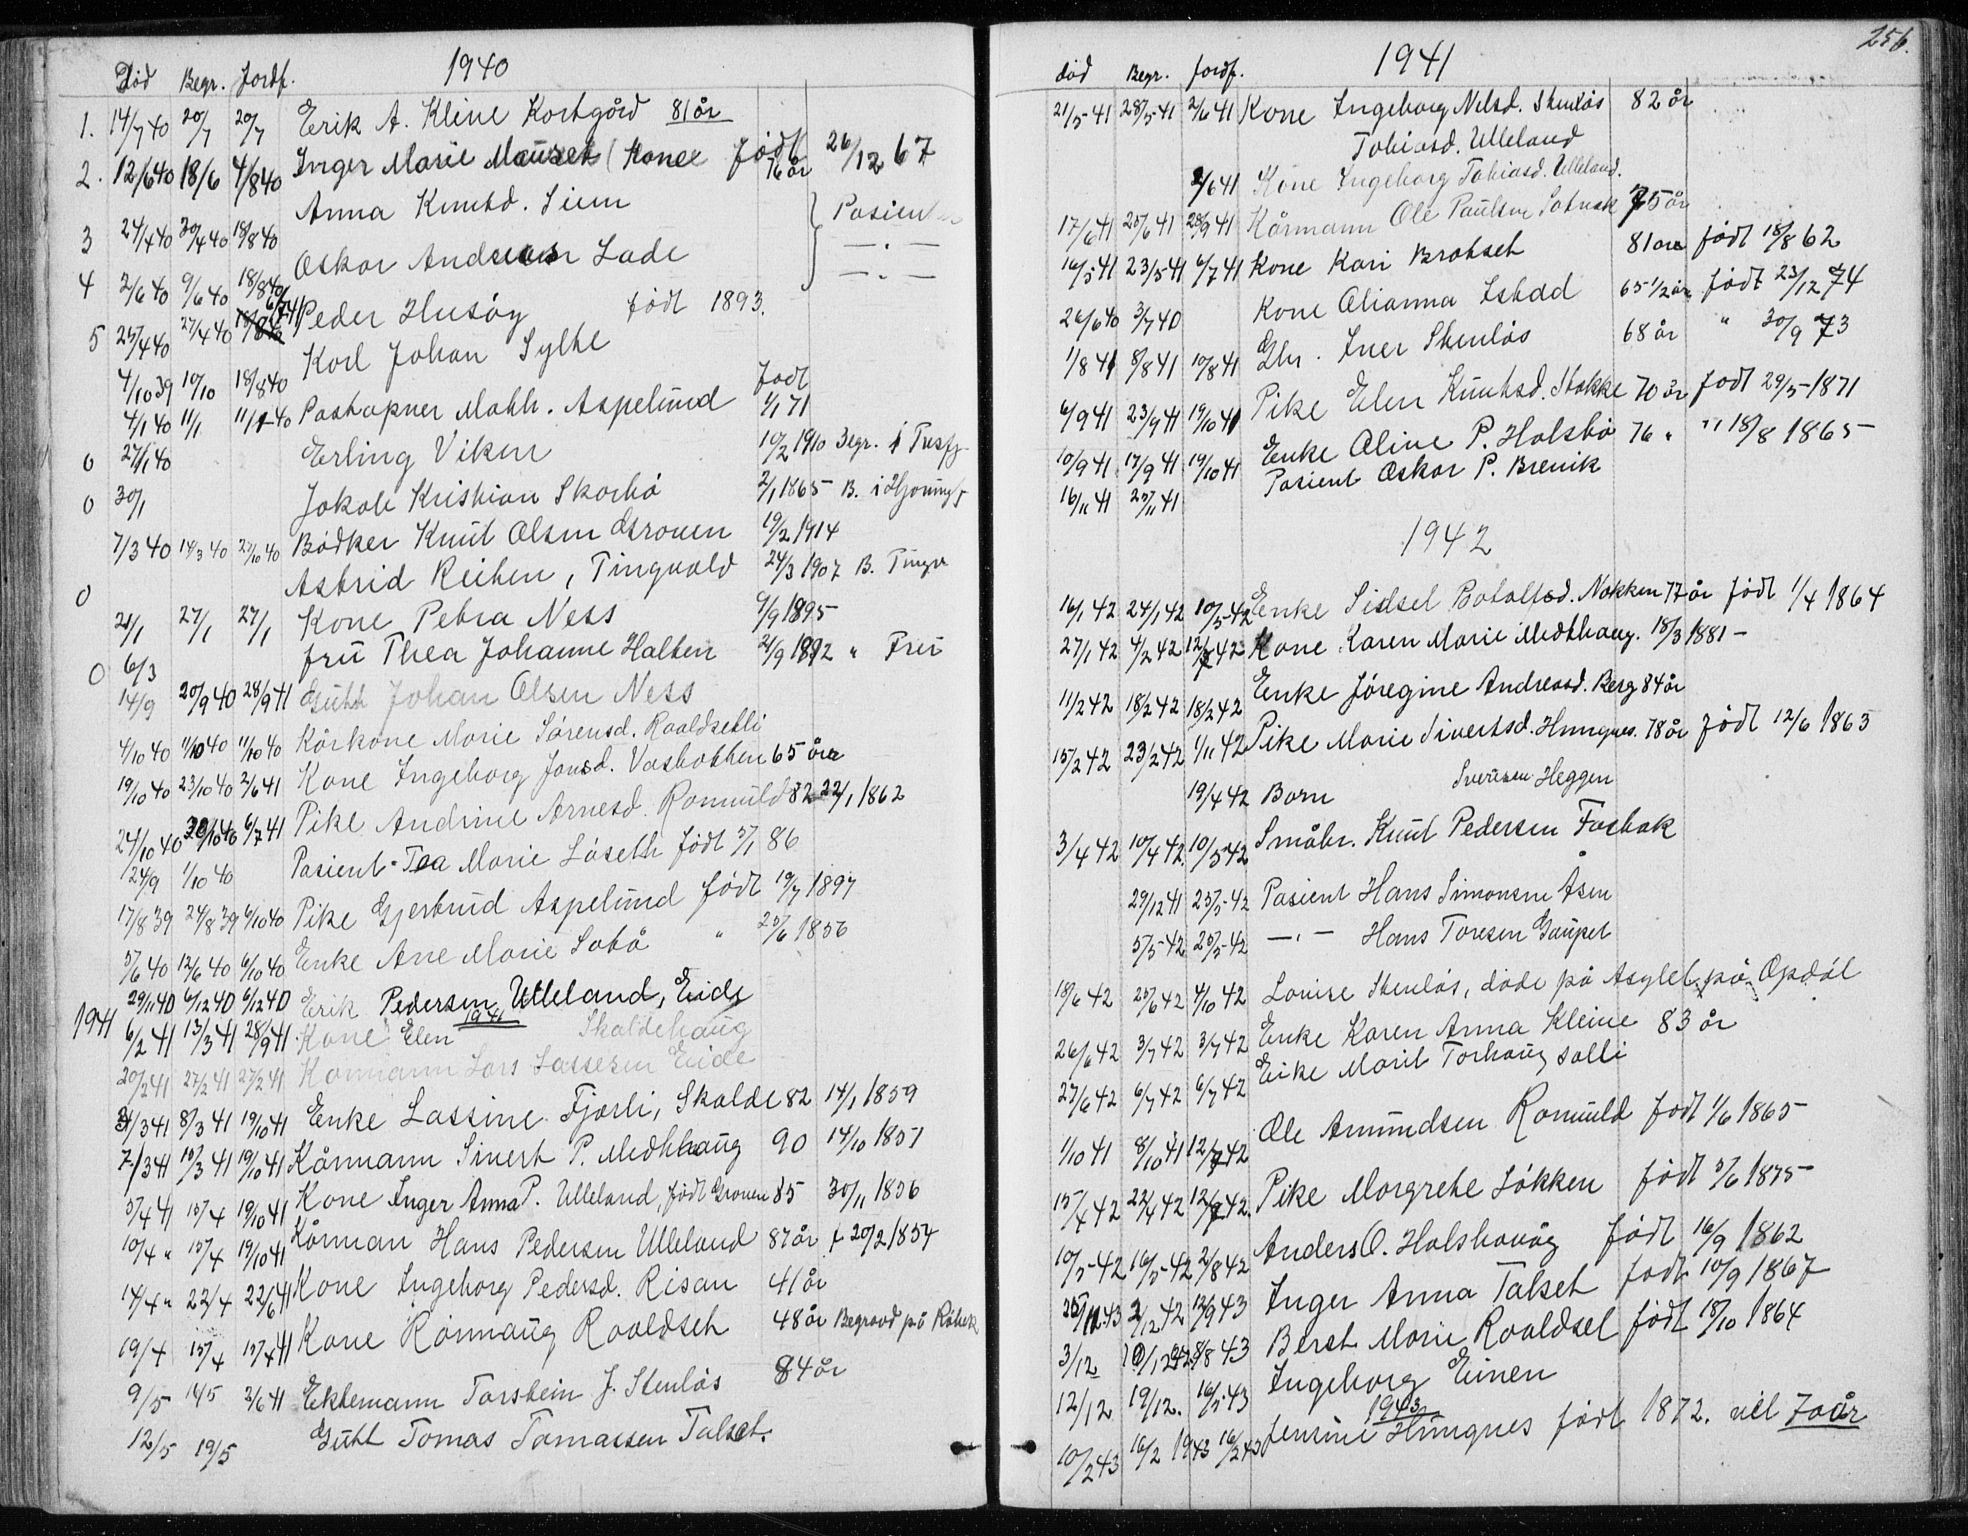 1940
Død Begr. Jordf.
1. 14/7 40 20/7 20/7 Erik A. Kleive Kortgård 81 år
2. 12/6 40 18/6 4/8 40 Inger Marie Mauset (Kone født 26/12 67
76 år
3 24/4 40 30/4 40 18/8 40 Anna Knutsd. Siem Pasient
4 2/6 40 9/6 40 18/8 40 Oskar Andreas Lade —"—
5 25/4 40 27/4 40 6/7 41 Peder Husøy født 1893. —"—
4/10 39 10/10 18/8 40 Karl Johan Sylte
4/1 40 11/1 11/1 40 Postopner Math. Aspelund født 1/1 71
0 27/1 40 Erling Viken 10/2 1910 Begr. i Tresfj.
0 30/1 Jakob Kristian Skorbø 2/1 1865 B. i
7/3 40 14/3 40 27/10 40 Bødker Knut Olsen Grouen 19/2 1914
0 Astrid Reiten, Tingvold 24/3 1907 B. Tingv
21/1 27/1 27/1 Kone Petra Ness 9/9 1895
0 6/3 fru Thea Johanne Halten 21/9 1892 " Frei
14/9 20/9 40 28/9 41 Gutt Johan Olsen Ness
4/10 40 11/10 40 11/10 40 Kårkone Marie Sørensd. Roaldsetli
19/10 40 23/10 40 2/6 41 Kone Ingeborg Jonsd. Vasbotten 65 år
24/10 40 30/10 40 6/7 41 Pike Andrine Arnesd. Romuld 82 22/1 1862
24/9 1/10 40 Pasient Tea Marie Løseth født 5/1 86
17/8 39 24/8 39 6/10 40 Pike Gjertrud Aspelund født 19/7 1897
5/6 40 12/6 40 6/10 40 Enke Ane Marie Solbø " 25/6 1856
29/11 40 6/12 40 6/12 40 Erik Pedersen Ulleland, Eide
1941
1941 6/2 41 13/3 41 28/9 41 Kone Elen Skaldehaug
20/2 41 27/2 41 27/2 41 Kårmann Lars Lassesen Eide
3/3 41 8/3 41 19/10 41 Enke Lassine Fjørli, Skalde 82 14/1 1859
7/3 41 15/3 41 19/10 41 Kårmann Sivert P. Medthaug 90 14/10 1851
5/4 41 15/4 19/10 41 Kone Inger Anna P. Ulleland, født Grouen 85 30/11 1856
10/4 " 15/4 19/10 41 Kårman Hans Pedersen Ulleland 87 år f 20/2 1854
14/4 " 22/4 22/6 41 Kone Ingeborg Pedersd. Risan 41 år
19/4 15/4 15/4 41 Kone Rønnaug Roaldset 48 år Begravd på Røbek
9/5 14/5 2/6 41 Ektemann Torstein J. Stenløs 84 år
12/5 19/5 Gutt Tomas Tomassen Talset.
256.
1941
død Begr. jordf.
21/5 41 28/5 41 2/6 41 Kone Ingeborg Nilsd. Stenløs 82 år
Tobiasd. Ulleland
2/6 41 Kone Ingeborg Tobiasd. Ulleland.
17/6 41 25/6 41 28/9 41 Kårmann Ole Paulsen Sotnak 75 år
16/5 41 23/5 41 6/7 41 Kone Kari Brokset 81 år født 18/8 62
26/6 40 3/7 40 Kone Olianna Istad 65 1/2 år født 23/12 74
1/8 41 8/8 41 10/8 41 Gbr. Iver Stenløs 68 år " 30/9 73
6/9 41 23/9 41 19/10 41 Pike Elen Knutsd. Stokke 70 år født 29/5-1871
10/9 41 17/9 41 19/10 41 Enke Oline P. Holsbø 76 " " 18/8 1865
16/11 41 25/11 41 Pasient Oskar P. Breivik
1942
16/1 42 24/1 42 10/5 42 Enke Sidsel Botolfsd. Nakken 77 år født 1/4 1864
27/1 42 4/2 42 12/7 42 Kone Karen Marie Medthaug. 18/3 1881 -
11/2 42 18/2 42 18/2 42 Enke Jøregine Andreasd. Berg 84 år
15/2 42 23/2 42 1/11 42 Pike Marie Sivertsd. Hungnes. 78 år født 12/6 1863
19/4 42 Barn Heggen
3/4 42 10/4 42 10/5 42 Småbr. Knut Pedersen Fosbak
29/12 41 25/5 42 Pasient Hans Simonsen Åsen
5/5-42 25/5-42 —"— Hans Toresen Gaupset
18/6 42 25/6 42 4/10 42 Louise Stenløs, døde på Asylet på Opdøl
26/6 42 3/7 42 3/7 42 Enke Karen Anna Kleive 83 år
27/6 42 6/7 42 6/7 42 Enke Marit Torhaug
1/10 41 8/10 41 12/7 42 Ole Amundsen Romuld født 1/6 1865
15/4 42 22/4 42 12/7 42. Pike Margrete Løkken født 5/6 1875
10/5-42 16/5-42 2/8 42 Anders O. Holshauåg født 16/9 1862
25/11 43 2/12 42 12/9 43 Inger Anna Talset født 10/9 1867
3/12 10/12 42 8/8 43 Beret Marie Roaldset født 18/10 1864
12/12 19/12. 16/5 43 Ingeborg Einen
1943
10/2 43 16/2 1943 16/2 43 Jensine Hungnes født 1872. vel 70 år